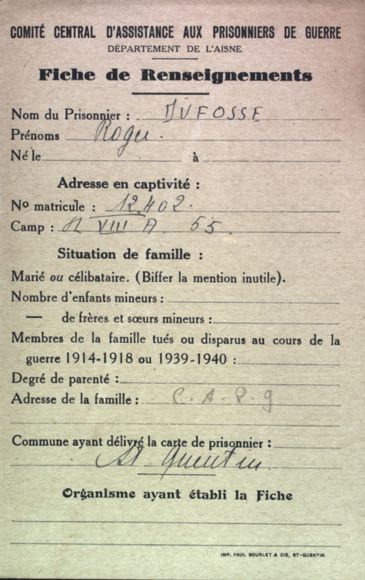 COMITÉ CENTRAL D'ASSISTANCE AUX PRISONNIERS DE GUERRE
DÉPARTEMENT DE L'AISNE
Fiche de Renseignements
Nom du Prisonnier : DUFOSSE
Prénoms Roger
Né le à
Adresse en captivité :
No matricule : 12.402
Camp : VIII A 55
Situation de famille :
Marié ou célibataire. (Biffer la mention inutile).
Nombre d'enfants mineurs :
— de frères et sœurs mineurs :
Membres de la famille tués ou disparus au cours de la
guerre 1914-1918 ou 1939-1940 :
Degré de parenté :
Adresse de la famille : C.A.P.g
Commune ayant délivré la carte de prisonnier :
St Quentin
Organisme ayant établi la Fiche
IMP. PAUL BOURLET & CIE, ST-QUENTIN